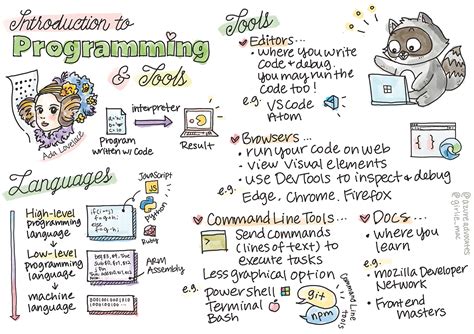 Introduction to
Programming
& Tools
Ada Lovelace
Program
written w/ Code
interpreter
Result
Languages
JavaScript
JS
Python
Ruby
High-level
programming
language
Low-level
programming
language
ARM
Assembly
machine
language
Tools
Editors...
where you write
code & debug.
you may run the
code too!
e.g.
VS Code
Atom
Browsers...
run your code on web
view visual elements
use DevTools to inspect & debug
e.g.
Edge, Chrome, Firefox
Command Line Tools...
Send commands
(lines of text) to
execute tasks
Less graphical option
e.g.
powershell
Terminal
Bash
Command Line
Tools
git
npm
Docs...
where you
learn
e.g.
mozilla Developer
Network
Frontend
masters
@azureadvocates
@girlie_mac